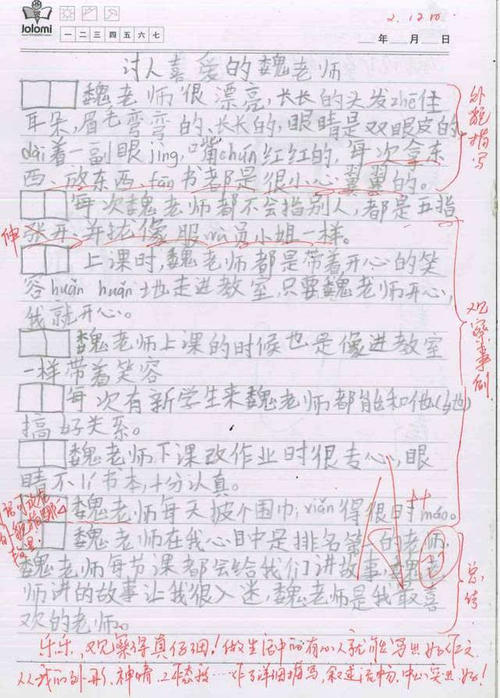 2.12.10
Jolomi
一 二 三 四 五 六 七
年 月 日
讨人喜爱的魏老师
魏老师很漂亮,长长的头发zhē住
耳朵,眉毛弯弯的、长长的,眼睛是双眼皮的
dài着一副眼jìng,嘴chún红红的,每次拿东
西、放东西、fān书都是很小心翼翼的。
外貌描写
每次魏老师都不会指别人,都是五指
伸
张开,并拢,像服wù员小姐一样。
上课时,魏老师都是带着开心的笑
容huǎn huǎn地走进教室,只要魏老师开心,
我就开心。
观察事例
魏老师上课的时候也是像进教室
一样带着笑容
每次有新学生来魏老师都能和他(她)
搞好关系。
魏老师下课改作业时很专心,眼
睛不离书本,十分认真。
魏老师每天披个围巾,xiǎn得很时máo。
魏老师在我心目中是排名第一的老师,
魏老师每节课都会给我们讲故事,魏老
师讲的故事让我很入迷,魏老师是我最喜
欢的老师。
总结
乐乐,观察得真仔细!做生活中的有心人就能写出好作文
从人物的外形、神情、工作态度…作了详细描写,叙述清楚,中心突出,好!